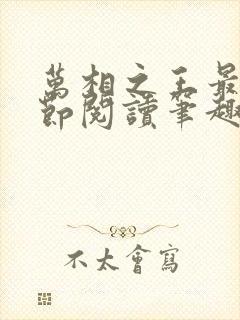 萬相之王最
節閱讀筆趣
不太會寫